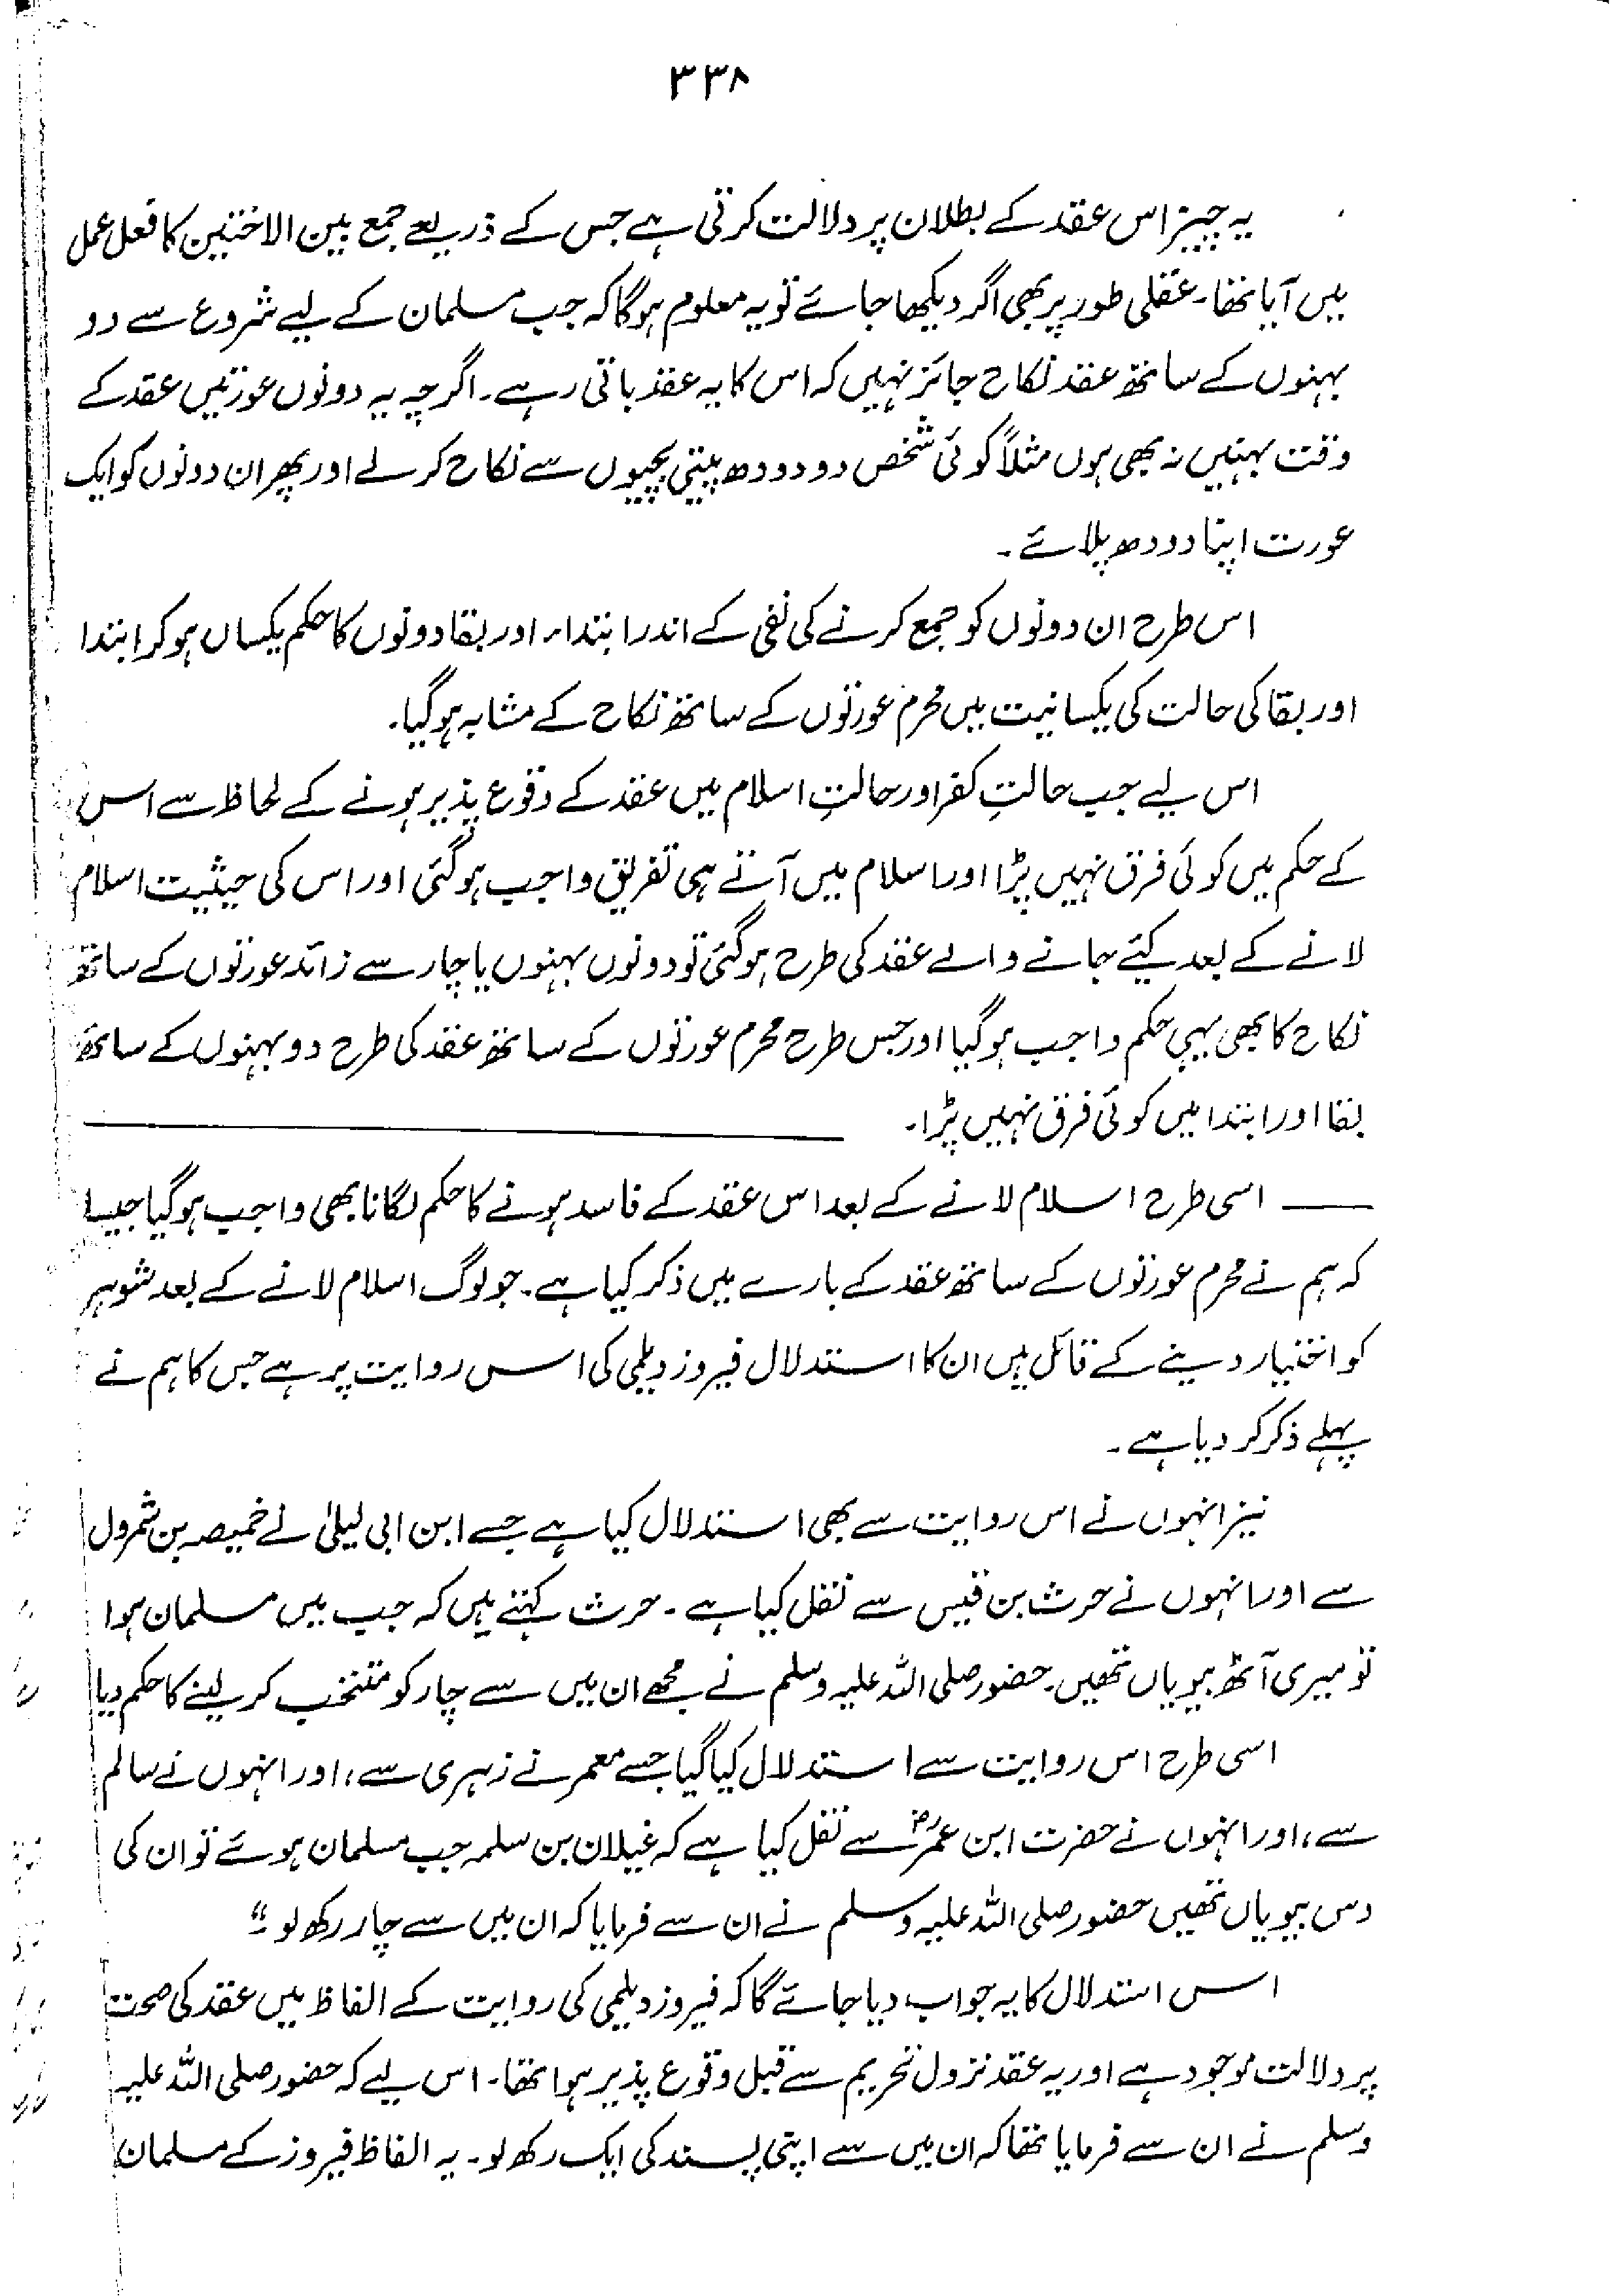 ۳۳۸
یہ چیز اس عقد کے بطلان پر دلالت کرتی ہے جس کے ذریعے جمع بین الاختین کا فعل عمل
میں آیا تھا۔ عقلی طور پر بھی اگر دیکھا جائے تو یہ معلوم ہوگا کہ جب مسلمان کے لیے شروع سے دو
بہنوں کے ساتھ عقد نکاح جائز نہیں کہ اس کا یہ عقد باقی رہے۔ اگرچہ یہ دونوں عورتیں عقد کے
وقت بہنیں نہ بھی ہوں مثلاً کوئی شخص دو دودھ پیتی بچیوں سے نکاح کرلے اور پھر ان دونوں کو ایک
عورت اپنا دودھ پلائے۔
اس طرح ان دونوں کو جمع کرنے کی نفی کے اندر ابتداء اور بقا دونوں کا حکم یکساں ہو کر ابتدا
اور بقا کی حالت کی یکسانیت میں محرم عورتوں کے ساتھ نکاح کے مشابہ ہوگیا۔
اس لیے جب حالتِ کفر اور حالتِ اسلام میں عقد کے وقوع پذیر ہونے کے لحاظ سے اس
کے حکم میں کوئی فرق نہیں پڑا اور اسلام میں آتے ہی تفریق واجب ہوگئی اور اس کی حیثیت اسلام
لانے کے بعد کیئے جانے والے عقد کی طرح ہوگئی تو دونوں بہنوں یا چار سے زائد عورتوں کے ساتھ
نکاح کا بھی یہی حکم واجب ہوگیا اور جس طرح محرم عورتوں کے ساتھ عقد کی طرح دو بہنوں کے ساتھ
بقا اور ابتدا میں کوئی فرق نہیں پڑا۔
اسی طرح اسلام لانے کے بعد اس عقد کے فاسد ہونے کا حکم لگانا بھی واجب ہوگیا جیسا
کہ ہم نے محرم عورتوں کے ساتھ عقد کے بارے میں ذکر کیا ہے۔ جو لوگ اسلام لانے کے بعد شوہر
کو اختیار دینے کے قائل ہیں ان کا استدلال فیروز دیلمی کی اس روایت پر ہے جس کا ہم نے
پہلے ذکر کر دیا ہے۔
نیز انہوں نے اس روایت سے بھی استدلال کیا ہے جسے ابن ابی لیلیٰ نے خمیصہ بن شمرول
سے اور انہوں نے حرث بن قیس سے نقل کیا ہے۔ حرث کہتے ہیں کہ جب میں مسلمان ہوا
تو میری آٹھ بیویاں تھیں۔ حضور صلی اللہ علیہ وسلم نے مجھے ان میں سے چار کو منتخب کر لینے کا حکم دیا
اسی طرح اس روایت سے استدلال کیا گیا جسے معمر نے زہری سے، اور انہوں نے سالم
سے، اور انہوں نے حضرت ابن عمرؓ سے نقل کیا ہے کہ غیلان بن سلمہ جب مسلمان ہوئے تو ان کی
دس بیویاں تھیں حضور صلی اللہ علیہ وسلم نے ان سے فرمایا کہ ان میں سے چار رکھ لو۔“
اس استدلال کا یہ جواب دیا جائے گا کہ فیروز دیلمی کی روایت کے الفاظ میں عقد کی صحت
پر دلالت موجود ہے اور یہ عقد نزول تحریم سے قبل وقوع پذیر ہوا تھا۔ اس لیے کہ حضور صلی اللہ علیہ
وسلم نے ان سے فرمایا تھا کہ ان میں سے اپنی پسند کی ایک رکھ لو۔ یہ الفاظ فیروز کے مسلمان